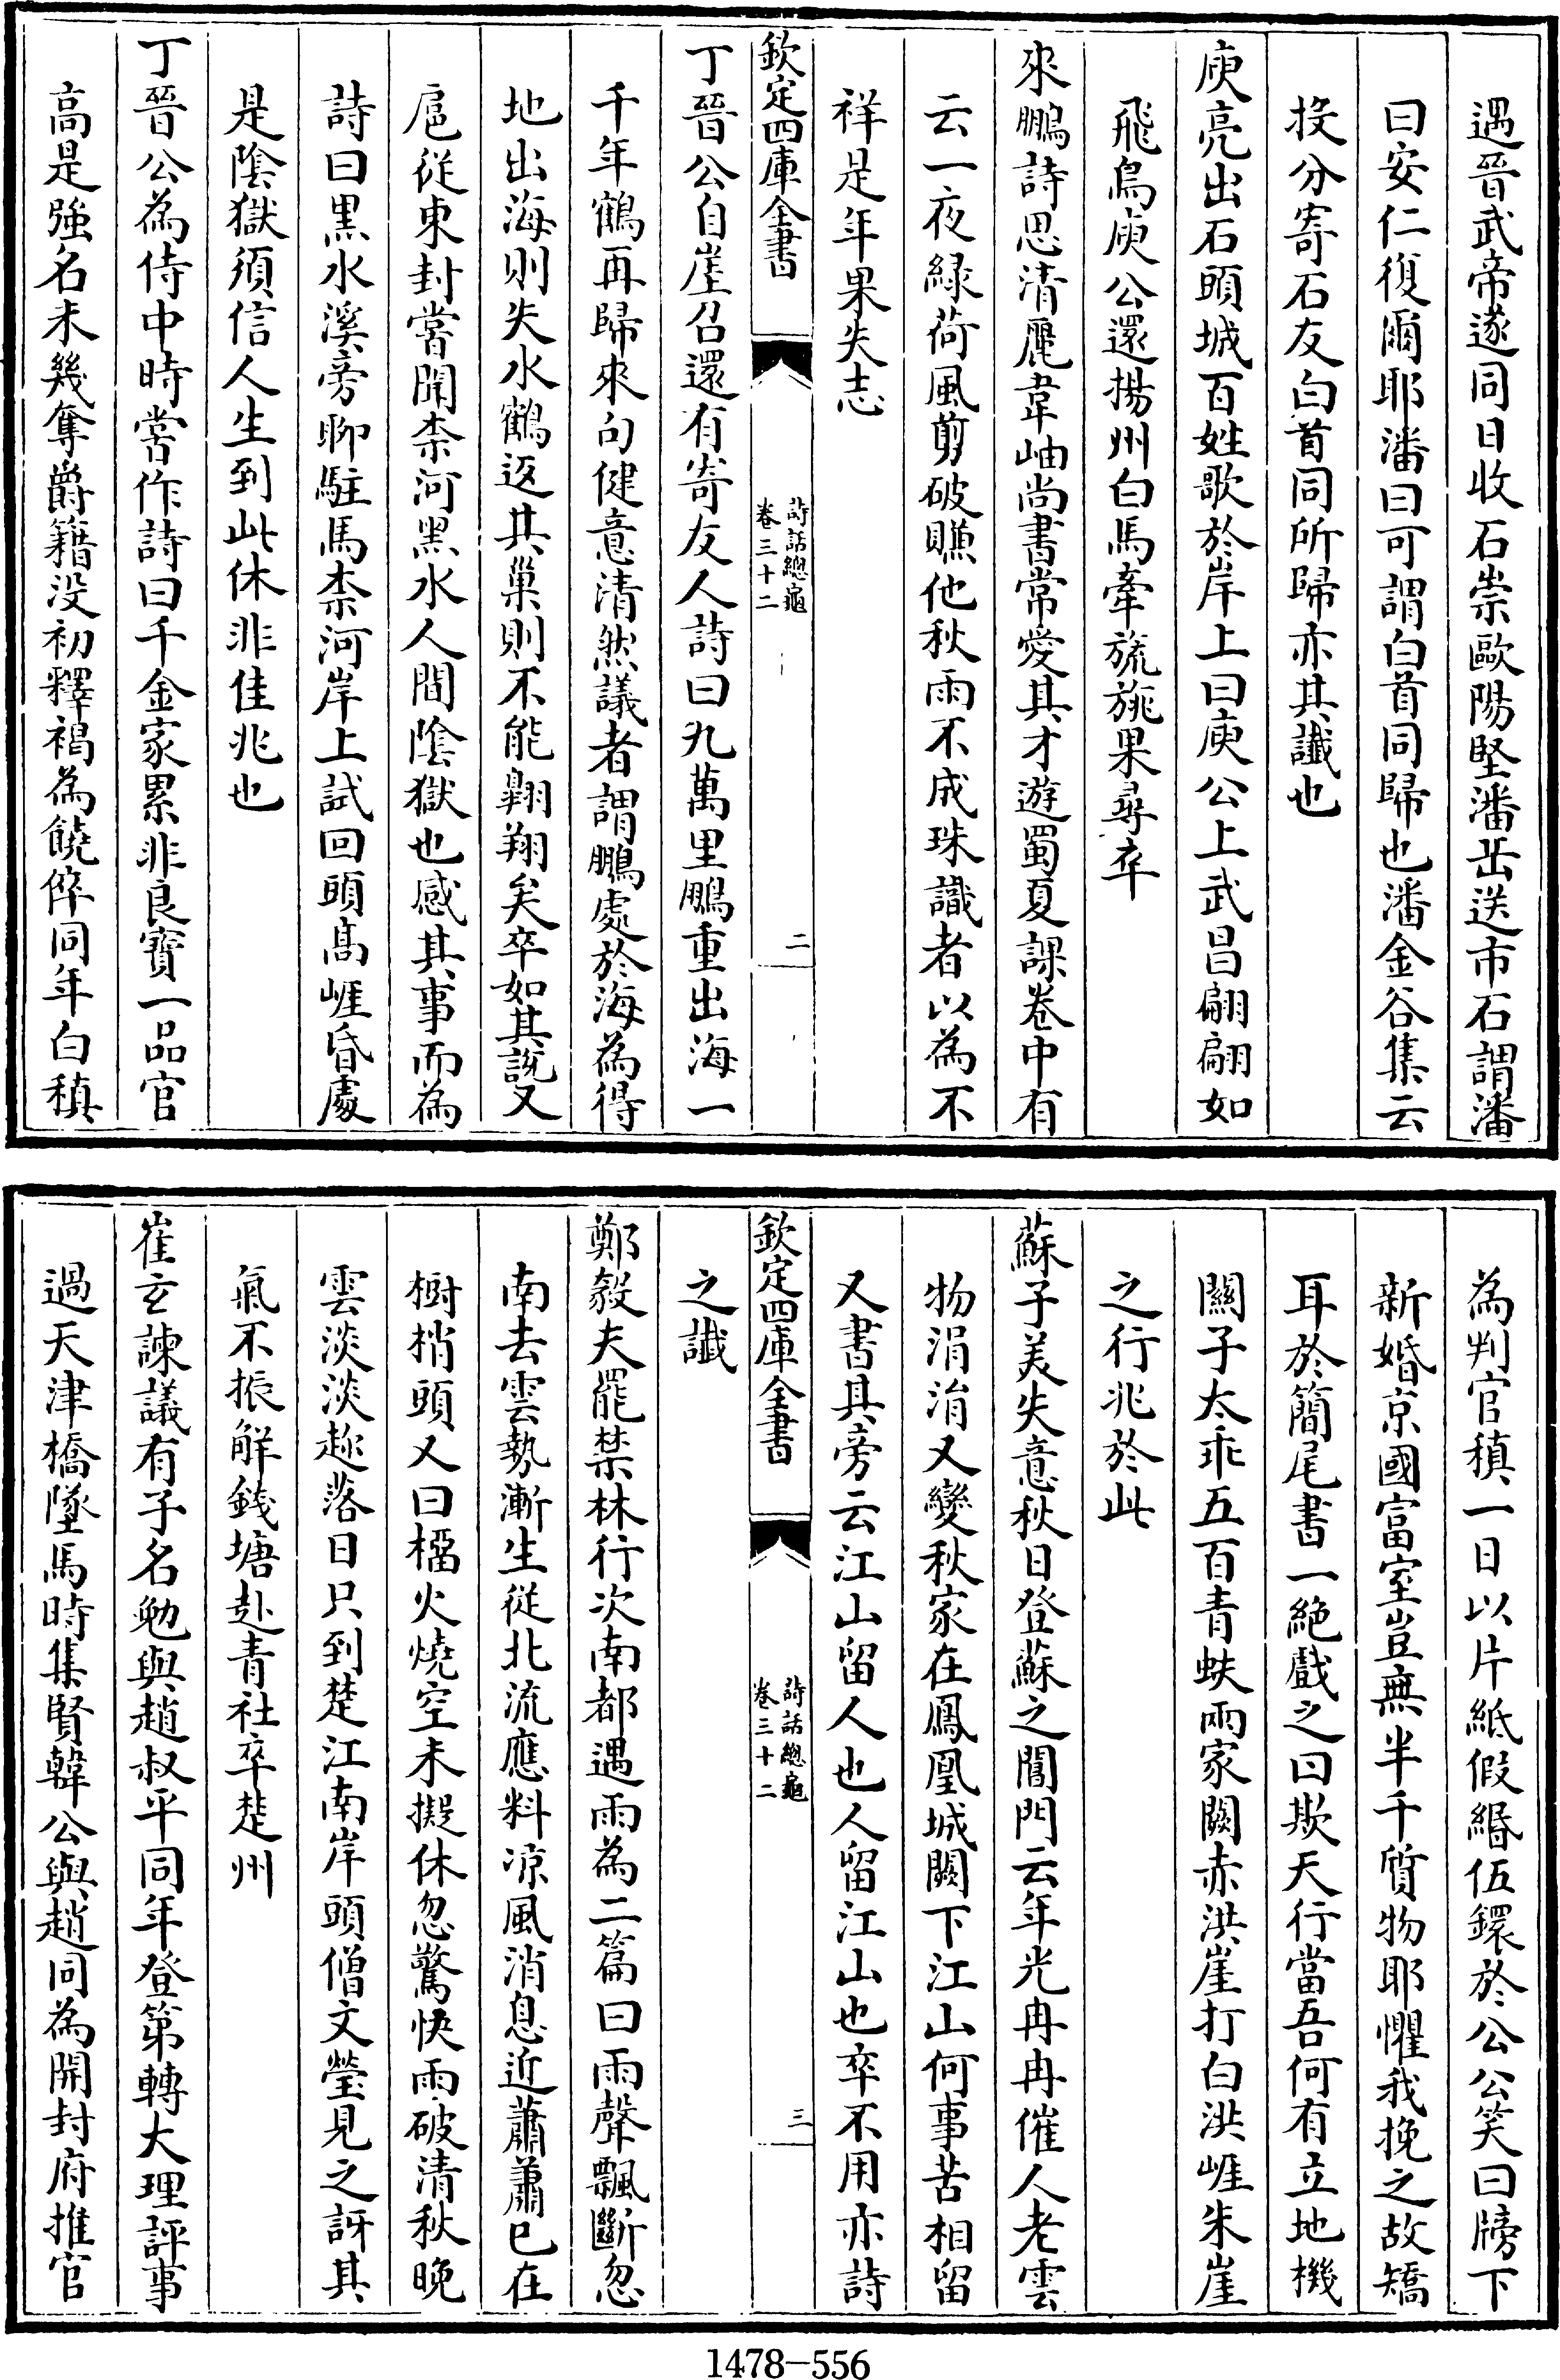 遇晉武帝遂同日收石崇歐陽堅潘岳送市石謂潘
曰安仁復爾耶潘曰可謂白首同歸也潘金谷集云
投分寄石友白首同所歸亦其讖也
庾亮出石頭城百姓歌於岸上曰庾公上武昌翩翩如
飛鳥庾公還揚州白馬牽旒旐果尋卒
來鵬詩思清麗韋岫尚書常愛其才遊蜀夏課卷中有
云一夜緑荷風剪破賺他秋雨不成珠識者以為不
祥是年果失志
欽定四庫全書
詩話總龜
卷三十二
二
丁晉公自崖召還有寄友人詩曰九萬里鵬重出海一
千年鶴再歸來句健意清然議者謂鵬處於海為得
地出海則失水鶴返其巢則不能翺翔矣卒如其說又
扈從東封嘗聞柰河黑水人間陰獄也感其事而為
詩曰黑水溪旁聊駐馬柰河岸上試回頭高崕昏處
是陰獄須信人生到此休非佳兆也
丁晉公為侍中時嘗作詩曰千金家累非良寶一品官
高是強名未幾奪爵籍没初釋褐為饒倅同年白稹
為判官稹一日以片紙假緡伍鐶於公公笑曰牓下
新婚京國富室豈無半千質物耶懼我挽之故矯
耳於簡尾書一絶戲之曰欺天行當吾何有立地機
關子太乖五百青蚨兩家闕赤洪崖打白洪崕朱崖
之行兆於此
蘇子美失意秋日登蘇之閶門云年光冉冉催人老雲
物涓涓又變秋家在鳳凰城闕下江山何事苦相留
又書其旁云江山留人也人留江山也卒不用亦詩
欽定四庫全書
詩話總龜
卷三十二
三
之讖
鄭毅夫罷禁林行次南都遇雨為二篇曰雨聲飄斷忽
南去雲勢漸生從北流應料凉風消息近蕭蕭已在
樹梢頭又曰橊火燒空未擬休忽驚快雨破清秋晚
雲淡淡趂落日只到楚江南岸頭僧文瑩見之訝其
氣不振解錢塘赴青社卒楚州
崔玄諫議有子名勉與趙叔平同年登第轉大理評事
過天津橋墜馬時集賢韓公與趙同為開封府推官
1478-556